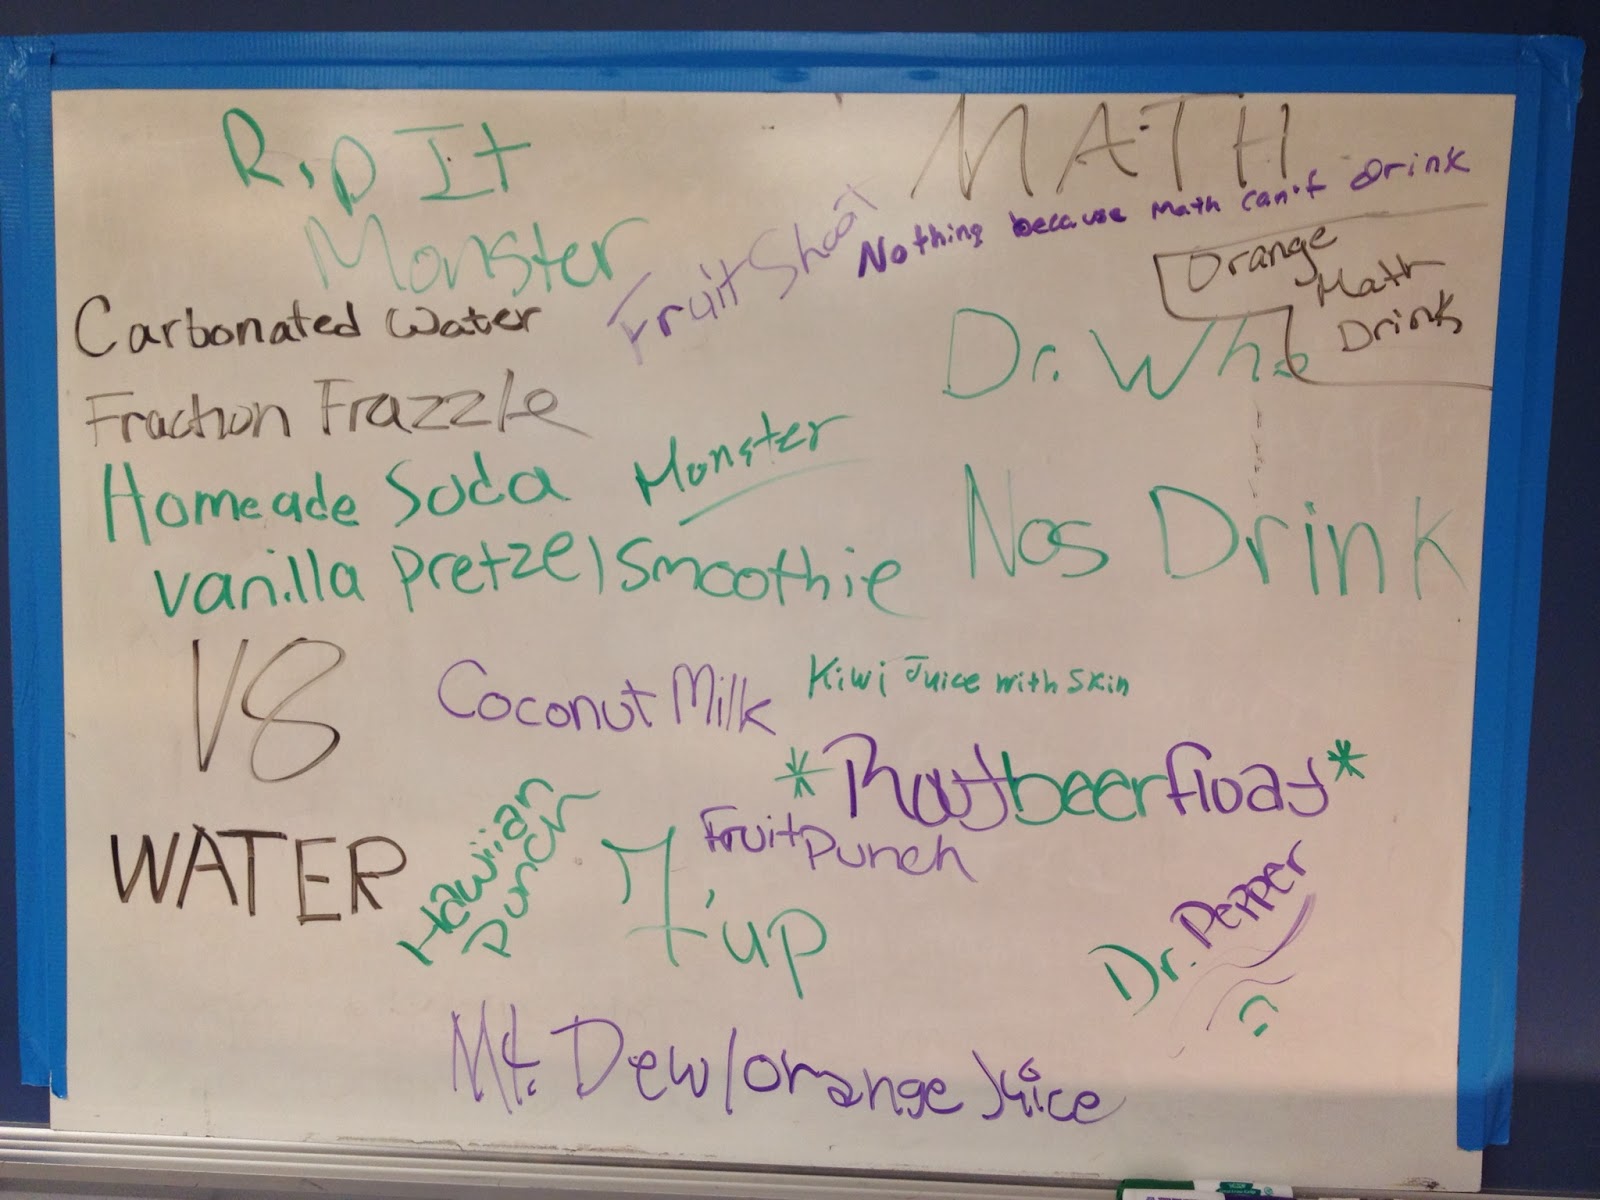 Rip It
MATH
Nothing because math can't drink
Monster
Fruit Shoot
Orange
Math
Drink
Carbonated water
Dr. Who
Fraction Frazzle
Homeade Soda
Monster
Nos Drink
vanilla pretzel smoothie
V8
Coconut Milk
Kiwi Juice with skin
*Rootbeerfloat*
WATER
Hawiian
Punch
7'up
Fruit Punch
Dr. Pepper
Mt. Dew/orange Juice